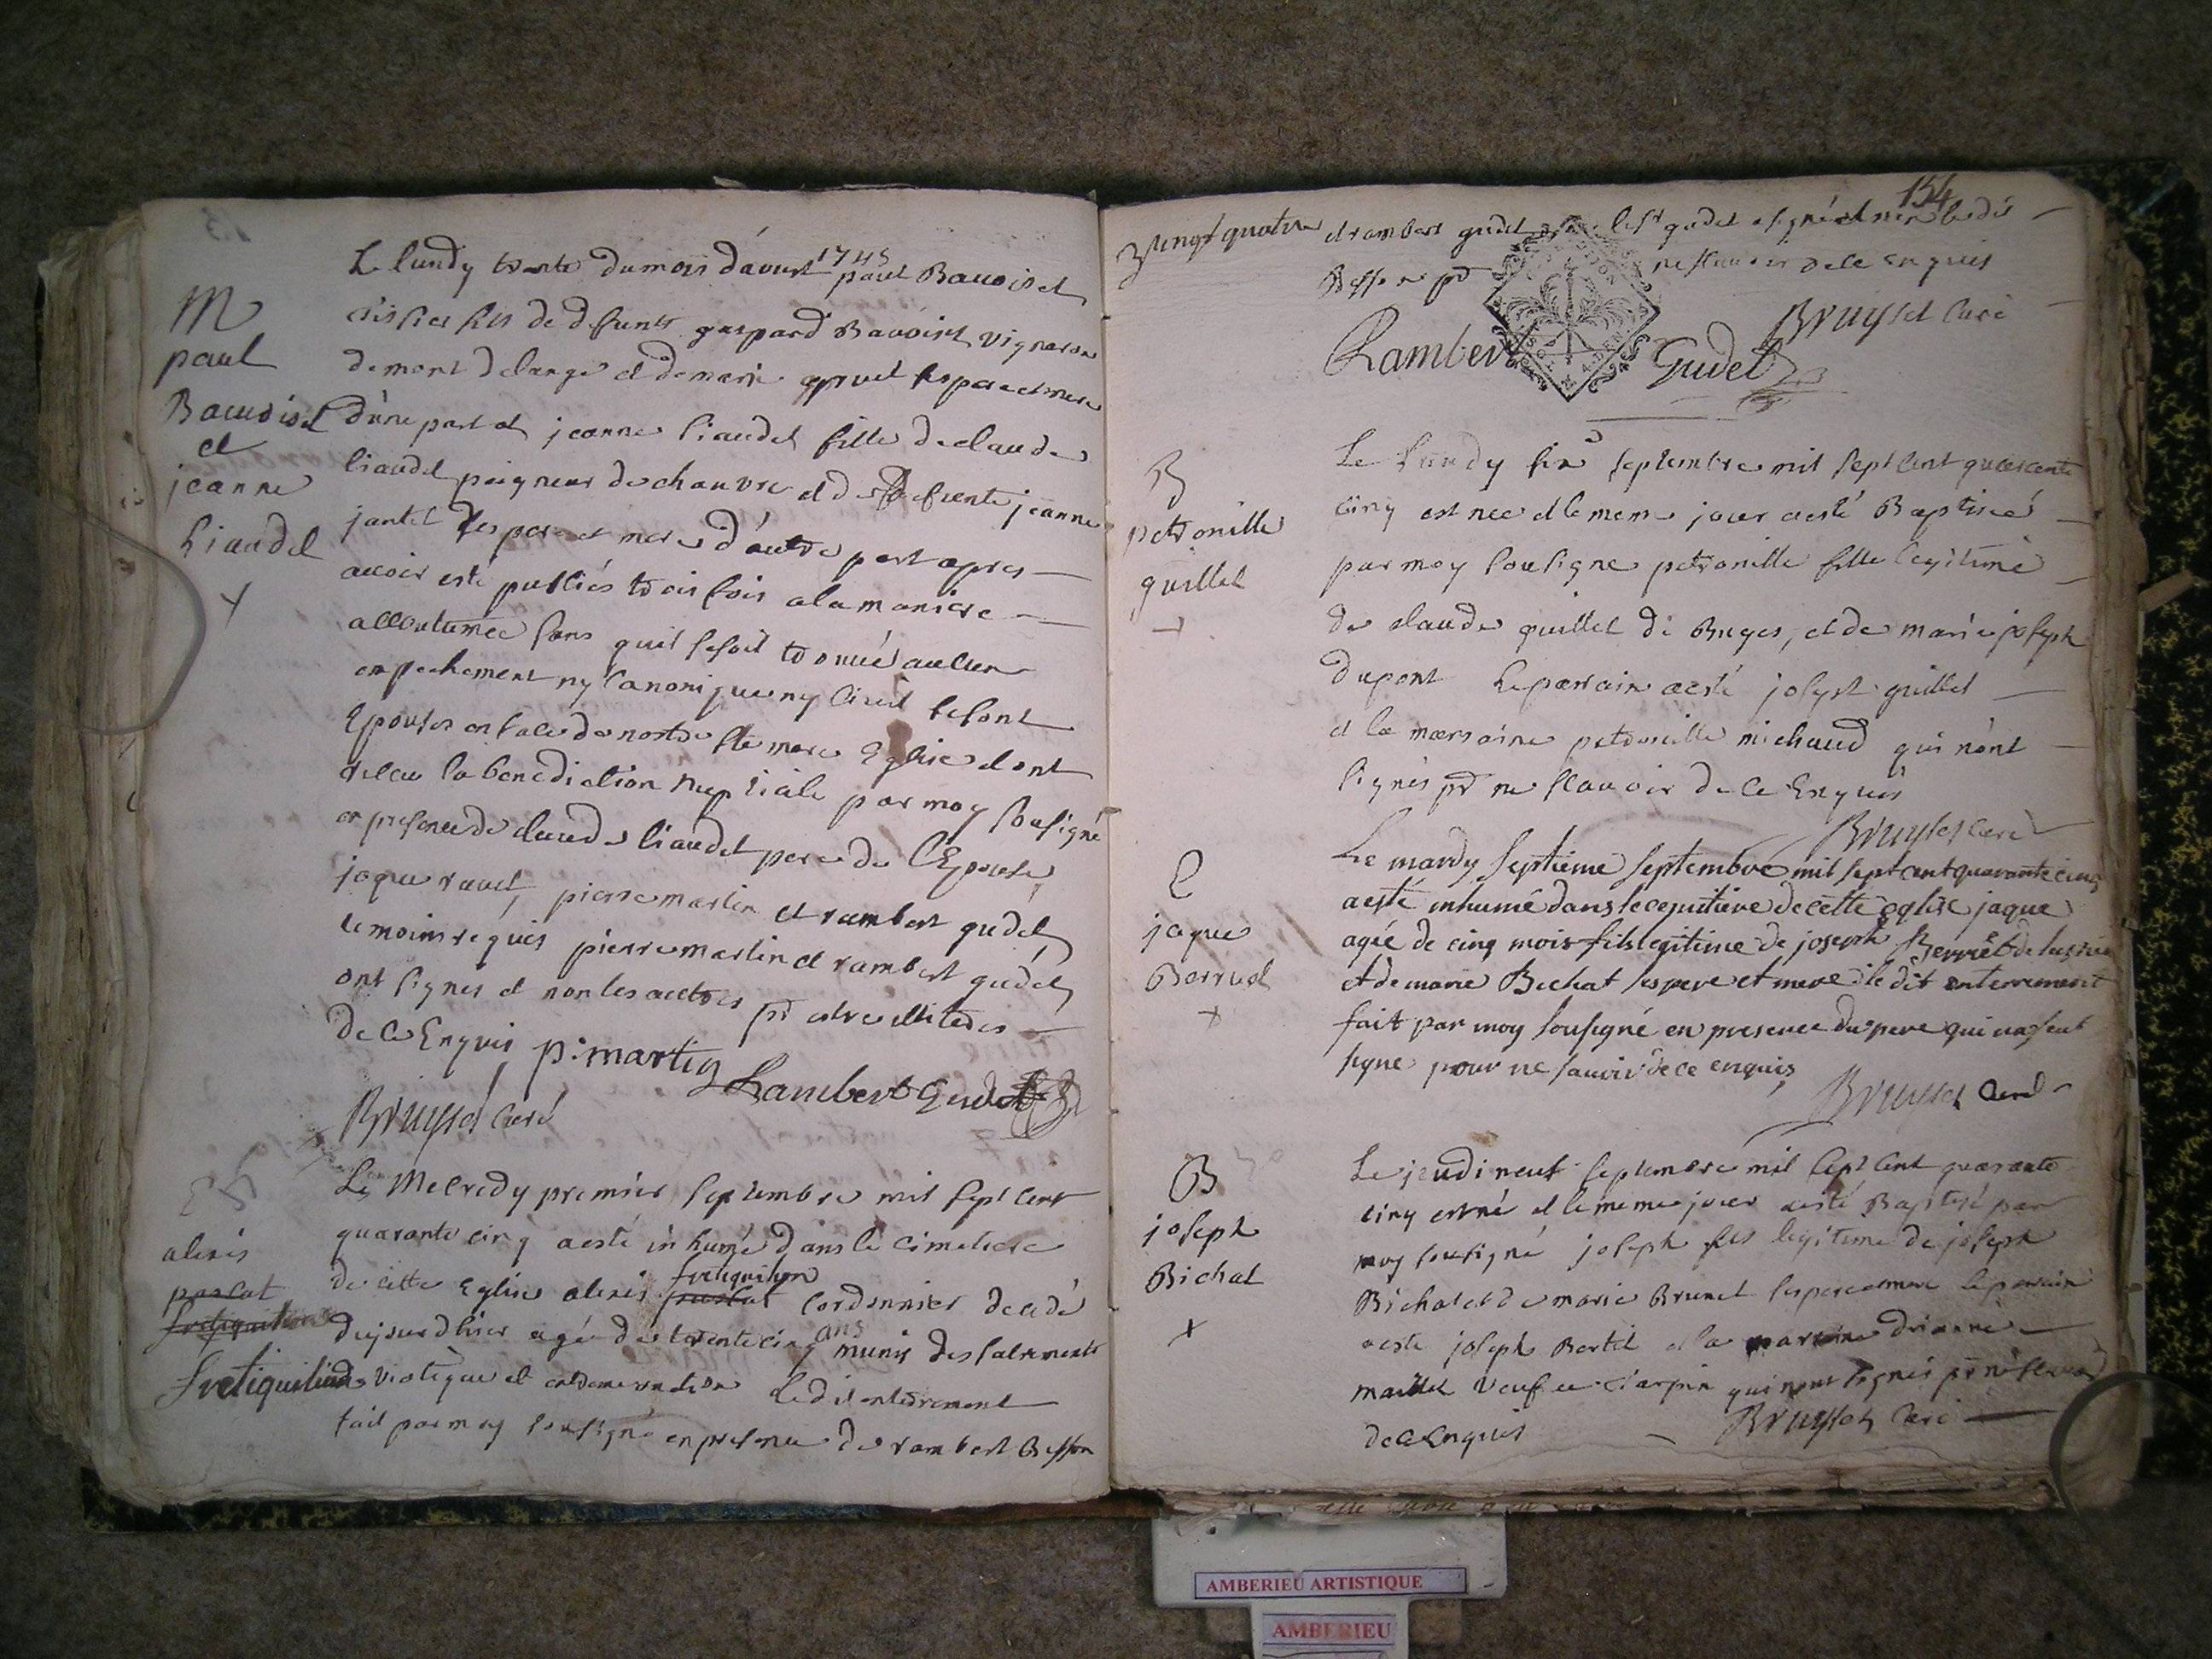 Le lundy trente du mois d'aoust 1745 paul Bavoiset
fils de defunts gaspard Bavoiset vigneron
de mont delange et de marie ses pere et mere
d'une part et jeanne liaudet fille de claude
liaudet peigneur de chanvre et de defuente jeanne
jantet ses pere et mere d'autre part apres
avoir esté publiés trois fois a la maniere
accoutumée sans quil se soit trouvé aucun
enpechement ny canonique ny civil se sont
Epousés en face de nostre ste mere Eglise et ont
receu la benediction nuptiale par moy sousigné
en presence de claude liaudet pere de l'Epouse
jaque ravet, pierre martin et rambert gudet
temoins réquis pierre martin et rambert gudet
ont signés et non les autres pr estre illiteres
de ce Enquis p. martin
Rambert Gudet
Bruyset Curé
M
paul
Bauvoiset
et
jeanne
Liaudet
Le Mecredy premier septembre mil sept cent
quarante cinq a esté inhumé dans le cimetiere
fretiquilion
de cette Eglise alexis pascat cordonnier decedé
ans
dujourdhier agé de trente cinq munis des sacrements
viatique et ledit enterrement
fait par moy sousigné en presence de rambert Besson
alexis
pascat
fretiquilion
154
vingt quatre
et rambert gudet le st gudet a signé et non ledit
Besson pr ne scavoir de ce enquis
Bruyset Curé
Rambert Gudet
B
petronille
guillet
Le Lundy six septembre mil sept cent quarante
cinq est née et le meme jour a esté Baptisée
par moy sousigne petronille fille legitime
de claude guillet de Buges, et de marie joseph
dupont Le parrain a esté joseph guillet
et la marraine petronille michaud qui n'ont
signés pr ne scavoir de ce Enquis
Bruyset curé
jaque
Berrut
Le mardy septieme septembre mil sept cent quarante cinq
a esté inhumé dans le cemitiere de cette eglise jaque
agée de cinq mois fils legitime de joseph Berret
et de marie Bichat ses pere et mere le dit enterrement
fait par moy sousigné en presence du pere qui na seut
signe pour ne savoir de ce enquis
Bruyset Curé
B
joseph
Bichat
Le jeudi neuf septembre mil sept cent quarante
cinq est né et le meme jour a esté Baptisé par
moy sousigné joseph fils legitime de joseph
Bichat et de marie Brunet ses pere et mere le parrain
a esté joseph Bertet et la marraine
maillet veufve qui n'ont signés pr ne scavoir
de ce Enquis Bruyset Curé
AMBERIEU ARTISTIQUE
AMBERIEU